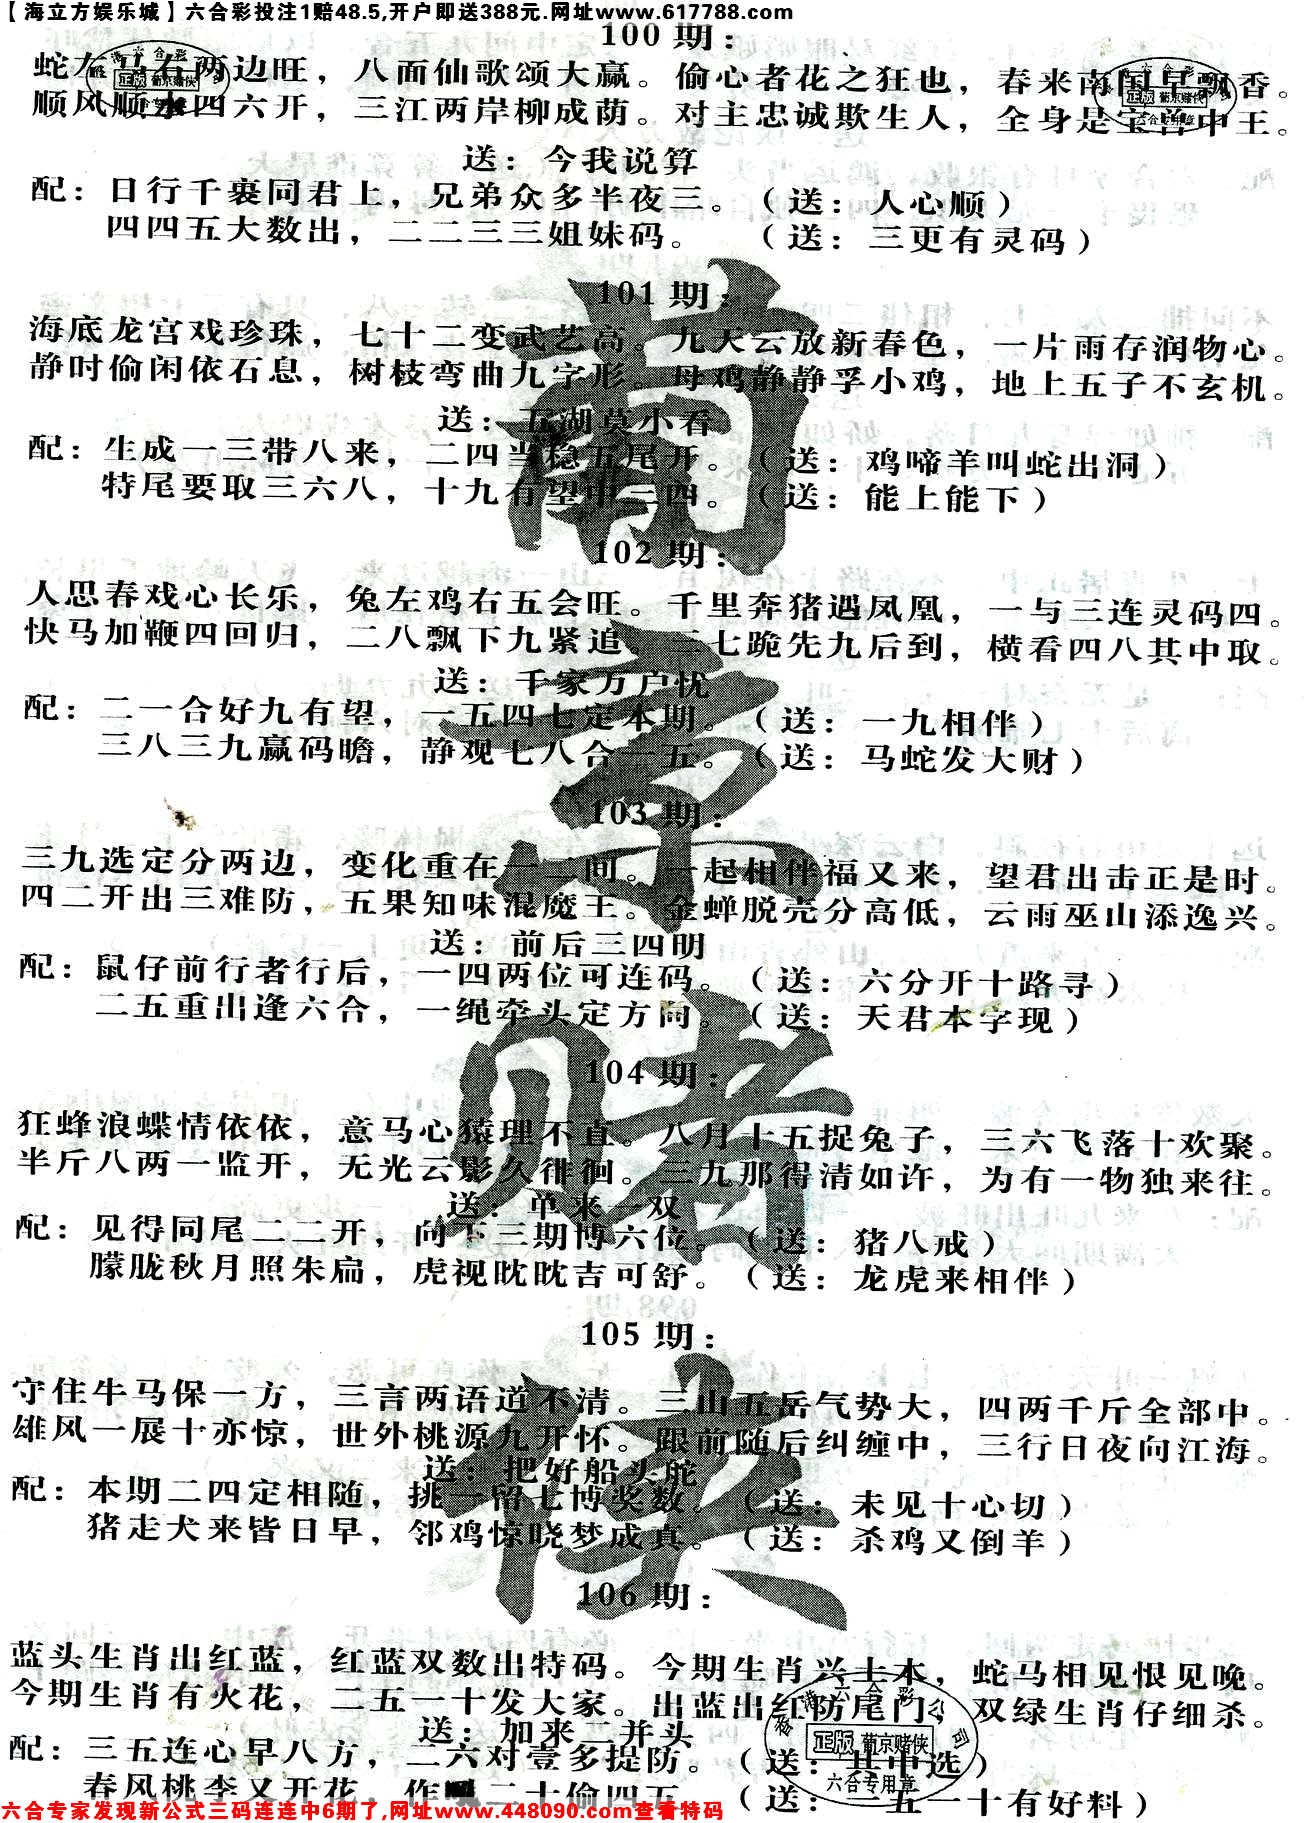 【海立方娱乐城】六合彩投注1赔48.5,开户即送388元.网址www.617788.com
100期：
蛇左马右两边旺，八面仙歌颂大赢。偷心者花之狂也，春来南国早飘香。
顺风顺水四六开，三江两岸柳成荫。对主忠诚欺生人，全身是宝兽中王。
送：今我说算
配：日行千裹同君上，兄弟众多半夜三。（送：人心顺）
四四五大数出，二二三三姐妹码。（送：三更有灵码）
101期：
海底龙宫戏珍珠，七十二变武艺高。九天云放新春色，一片雨存润物心。
静时偷闲依石息，树枝弯曲九字形。母鸡静静孚小鸡，地上五子不玄机。
送：五湖莫小看
配：生成一三带八来，二四当稳五尾开。（送：鸡啼羊叫蛇出洞）
特尾要取三六八，十九有望中三四。（送：能上能下）
102期：
人思春戏心长乐，兔左鸡右五会旺。千里奔猪遇凤凰，一与三连灵码四。
快马加鞭四回归，二八飘下九紧追。二七跪先九后到，横看四八其中取。
送：千家万户忧
配：二一合好九有望，一五四七定本期。（送：一九相伴）
三八三九赢码瞻，静观七八合一五。（送：马蛇发大财）
103期：
三九选定分两边，变化重在一二间。一起相伴福又来，望君出击正是时。
四二开出三难防，五果知味混魔王。金蝉脱壳分高低，云雨巫山添逸兴。
送：前后三四明
配：鼠仔前行者行后，一四两位可连码。（送：六分开十路寻）
二五重出逢六合，一绳牵头定方向。（送：天君本字现）
104期：
狂蜂浪蝶情依依，意马心猿理不直。八月十五捉兔子，三六飞落十欢聚。
半斤八两一监开，无光云影久徘徊。三九那得清如许，为有一物独来往。
送：单来一双
配：见得同尾二二开，向下三期博六位。（送：猪八戒）
朦胧秋月照朱扁，虎视眈眈吉可舒。（送：龙虎来相伴）
105期：
守住牛马保一方，三言两语道不清。三山五岳气势大，四两千斤全部中。
雄风一展十亦惊，世外桃源九开怀。跟前随后纠缠中，三行日夜向江海。
送：把好船头舵
配：本期二四定相随，挑一留七博奖数。（送：未见十心切）
猪走犬来皆日早，邻鸡惊晓梦成真。（送：杀鸡又倒羊）
106期：
蓝头生肖出红蓝，红蓝双数出特码。今期生肖兴土本，蛇马相见恨见晚。
今期生肖有火花，二五一十发大家。出蓝出红防尾门，双绿生肖仔细杀。
送：加来二并头
配：三五连心早八方，二六对壹多提防。（送：其中选）
春风桃李又开花，作 二十偷四五（送：一五一十有好料）
南京赌侠
香港六合彩公司
正版 葡京赌侠
六合专用章
六合专家发现新公式三码连连中6期了,网址www.448090.com查看特码